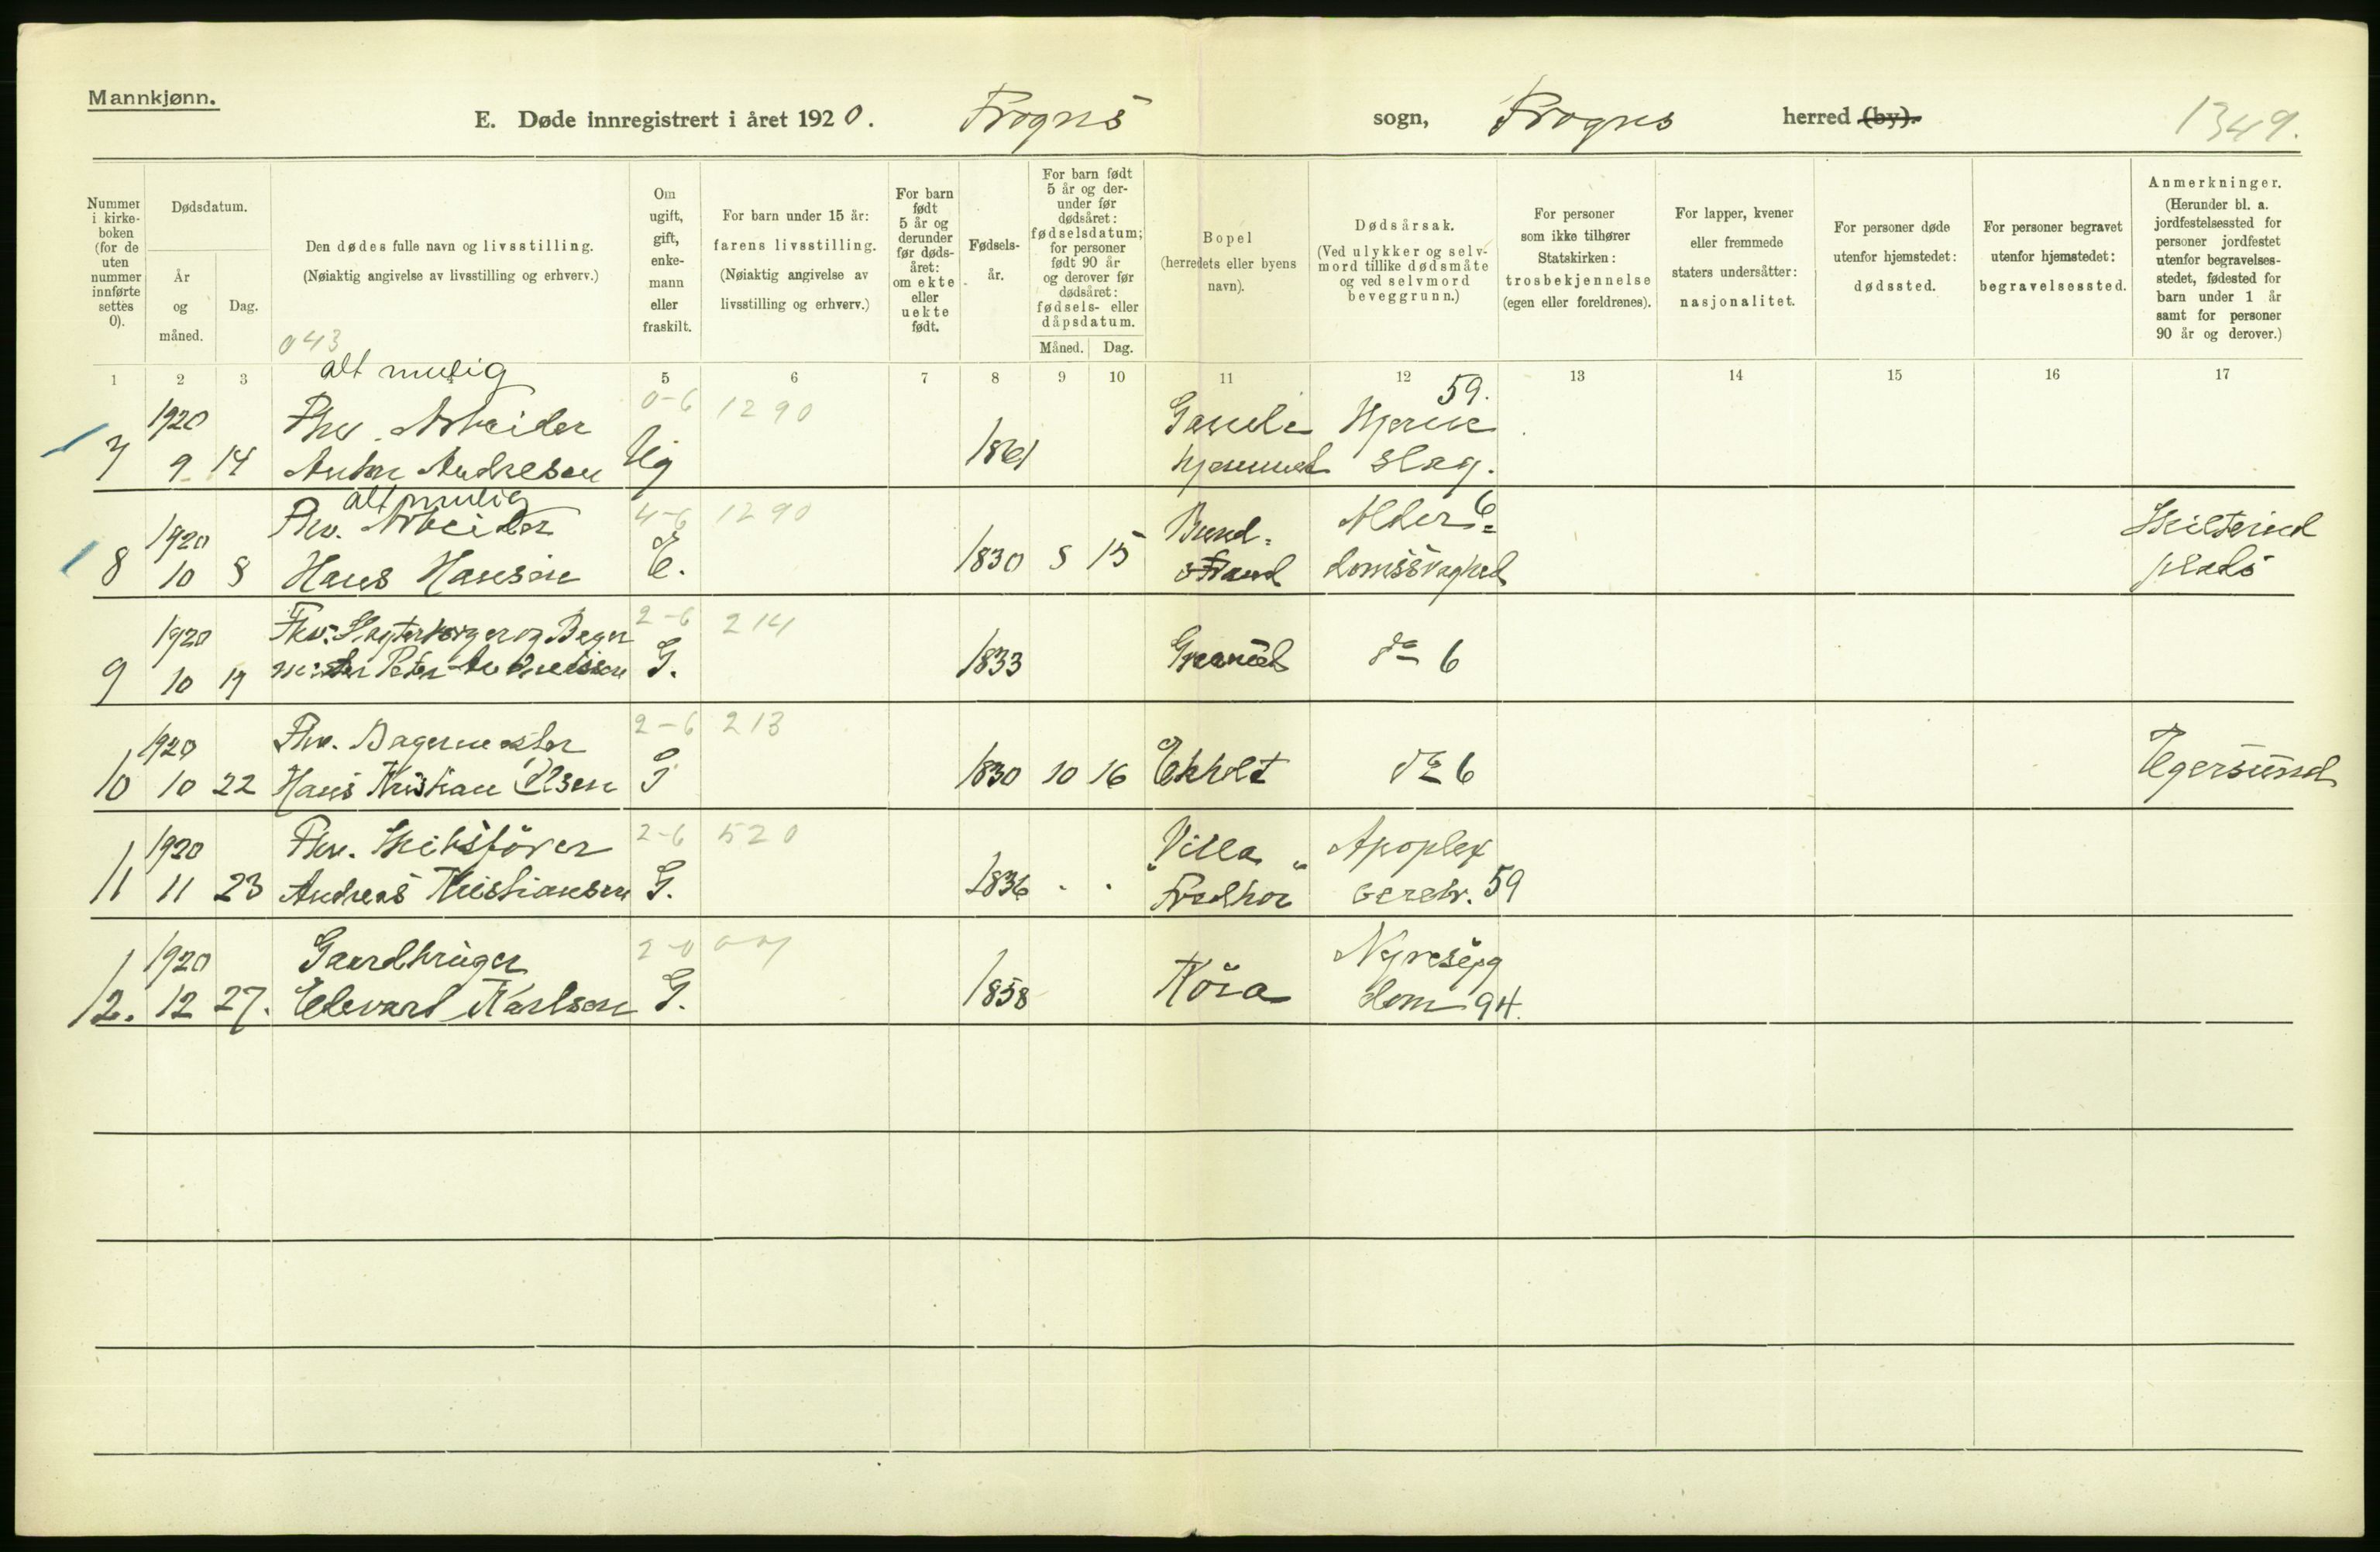 Mannkjønn.
E. Døde innregistrert i året 1920. Frogns sogn, Frogns herred (by). 1349.
Nummer i kirkeboken (for de uten nummer innførte settes 0).
Dødsdatum.
År og måned.
Dag.
Den dødes fulle navn og livsstilling.
(Nøiaktig angivelse av livsstilling og erhverv.)
Om ugift, gift, enkemann eller fraskilt.
For barn under 15 år: farens livsstilling.
(Nøiaktig angivelse av livsstilling og erhverv.)
For barn født 5 år og derunder før dødsåret: om ekte eller uekte født.
Fødselsår.
For barn født 5 år og derunder før dødsåret: fødselsdatum; for personer født 90 år og derover før dødsåret: fødsels- eller dåpsdatum.
Måned. Dag.
Bopel
(herredets eller byens navn).
Dødsårsak.
(Ved ulykker og selvmord tillike dødsmåte og ved selvmord beveggrunn.)
For personer som ikke tilhører Statskirken: trosbekjennelse (egen eller foreldrenes).
For lapper, kvener eller fremmede staters undersåtter: nasjonalitet.
For personer døde utenfor hjemstedet: dødssted.
For personer begravet utenfor hjemstedet: begravelsessted.
Anmerkninger.
(Herunder bl. a. jordfestelsessted for personer jordfestet utenfor begravelsesstedet, fødested for barn under 1 år samt for personer 90 år og derover.)
043
alt mulig
1 2 3 5 6 7 8 9 10 11 12 13 14 15 16 17
1920 Fhv. Arbeider 0-6 1290 Gamle Hjerte 59.
7 9 14 Anton Andresen Ug 1861 slag.
alt mulig
1920 Fhv. Arbeider 4-6 1290 Alder= 6
8 10 8 Hans Hansen E. 1830 5 15 strand domssvaghed plads
1920 Fhv. 2-6 214
9 10 19 Peter G. 1833 do 6
1920 Fhv. Bagermester 2-6 213
10 10 22 Hans Kristian Olsen G 1830 10 16 Ekholt do 6 Egersund
1920 Fhv. Skibsfører 2-6 520 "Villa" Apoplex
11 11 23 Andreas Kristiansen G. 1836 Fredhov cerebr. 59
1920 Gaardbruger 2-0 Nyresyg
12. 12 27. Edvart Karlsen G. 1858 dom 94.